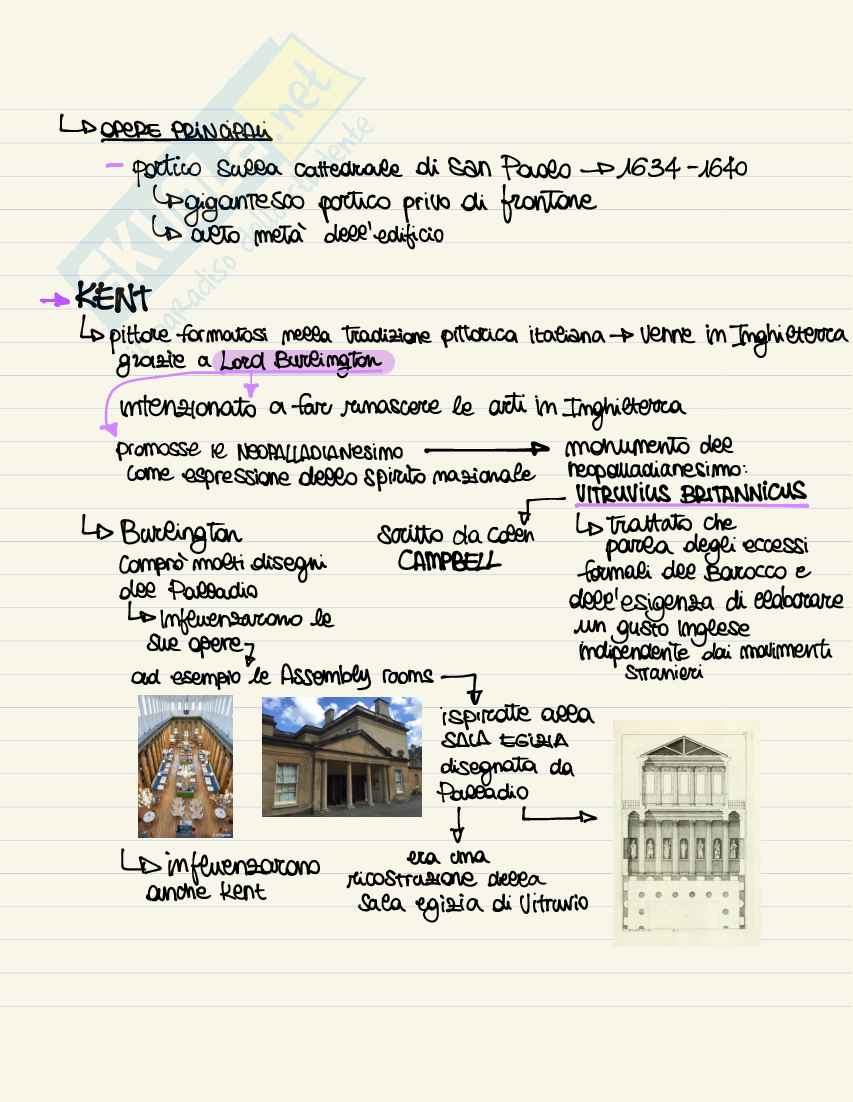 OPERE PRINCIPALI
- portico sulla cattedrale di San Paolo → 1634-1640
↳ gigantesco portico privo di frontone
↳ alto metà dell'edificio
→ KENT
↳ pittore formatosi nella tradizione pittorica italiana → venne in Inghilterra
grazie a Lord Burlington
intenzionato a far rinascere le arti in Inghilterra
promosse il NEOPALLADIANESIMO
come espressione dello spirito nazionale
monumento del
neopalladianesimo:
VITRUVIUS BRITANNICUS
↳ trattato che
parla degli eccessi
formali del Barocco e
dell'esigenza di elaborare
un gusto inglese
indipendente dai movimenti
stranieri
scritto da Colen
CAMPBELL
↳ Burlington
comprò molti disegni
del Palladio
↳ influenzarono le
sue opere
ad esempio le Assembly rooms
ispirate alla
SALA EGIZIA
disegnata da
Palladio
era una
ricostruzione della
sala egizia di Vitruvio
↳ influenzarono
anche Kent
skuola.net
paradiso dello studente